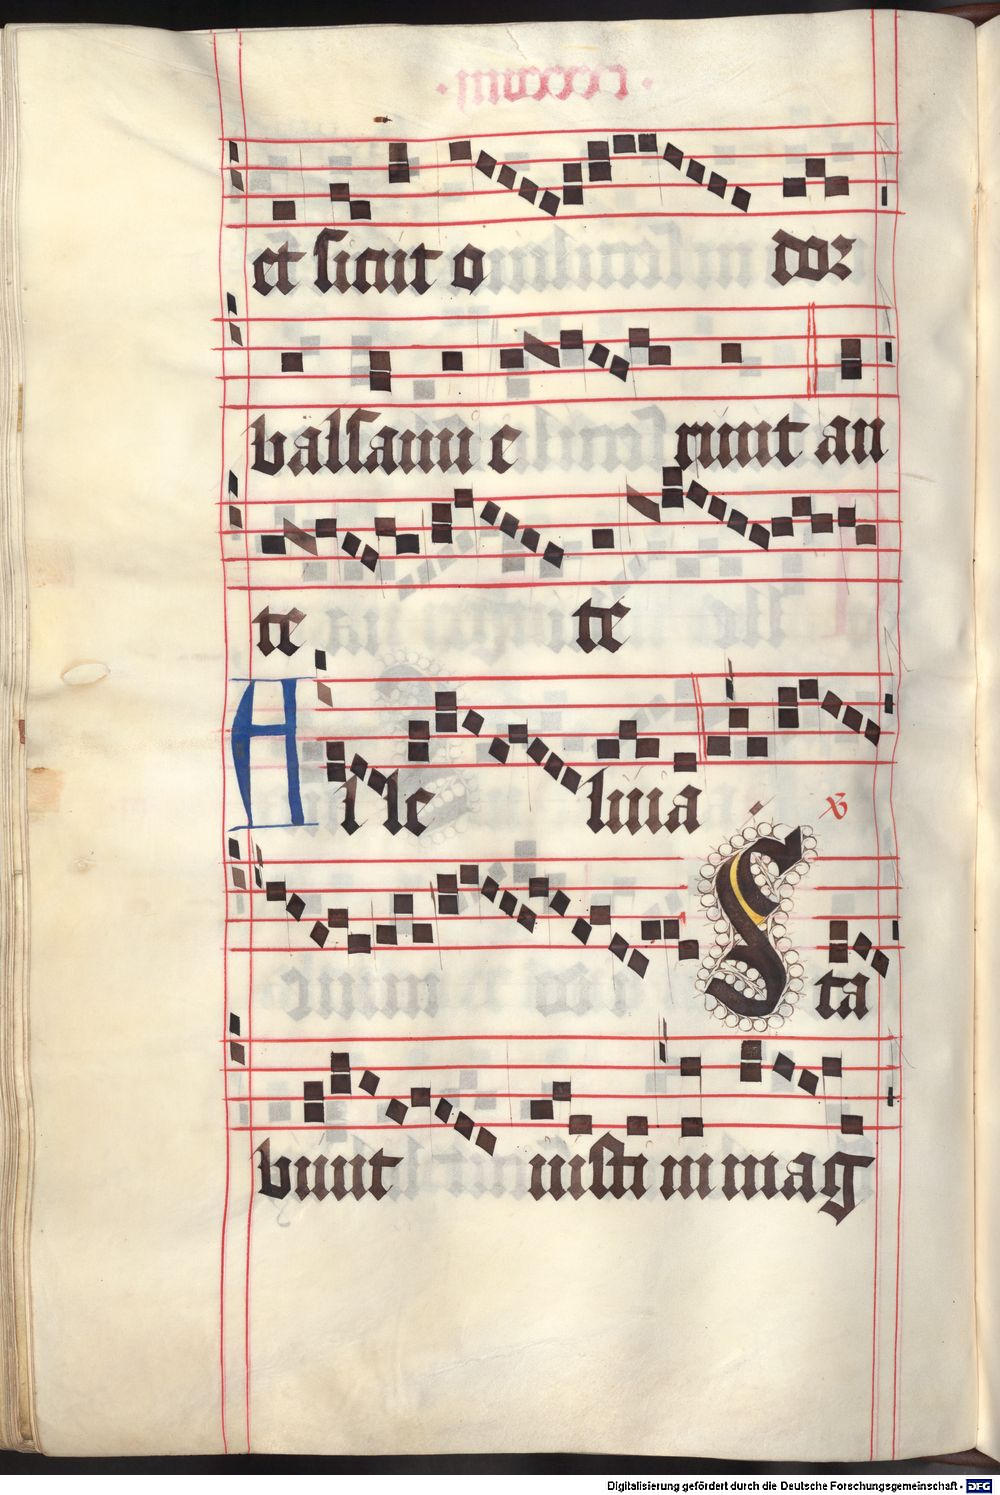 et sicut o dor
balsami e runt an
te te
Alle luia ℣
Sta
bunt iusti in mag
Digitalisierung gefördert durch die Deutsche Forschungsgemeinschaft - DFG